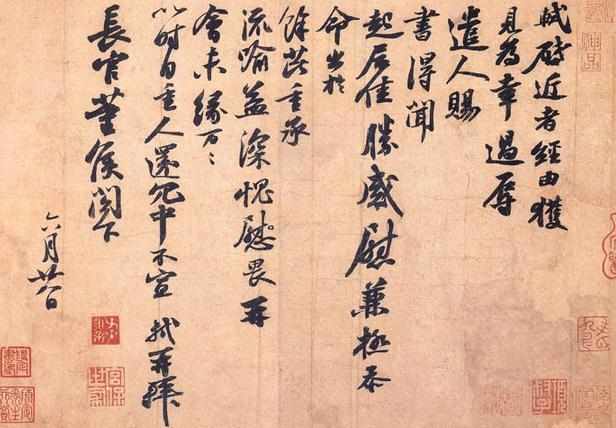 軾啟近者經由獲
見為幸過辱
遣人賜
書得聞
起居佳勝感慰兼極忝
命出於
餘芘重承
流喻益深愧慰畏再
會未緣万〻
以時自重人還冗中不宣 軾再拜
長官董侯閤下
六月廿八日